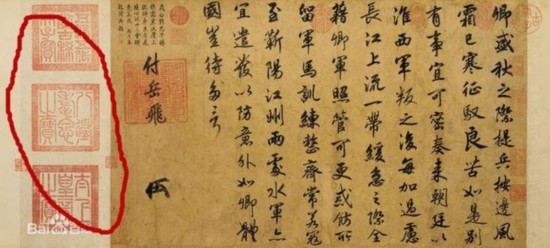 卿盛秋之際提兵按邊風
霜已寒征馭良苦如是別
有事宜可密奏來朝廷以
淮西軍叛之後每加過慮
長江上流一帶緩急之際全
藉卿軍照管可更戒飭所
留軍馬訓練整齊常若寇
至蘄陽江州兩處水軍亦
宜遣發以防意外如卿體
國豈待多言
付岳飛
八徵耄念之寶
太上皇帝之寶
Bai百科